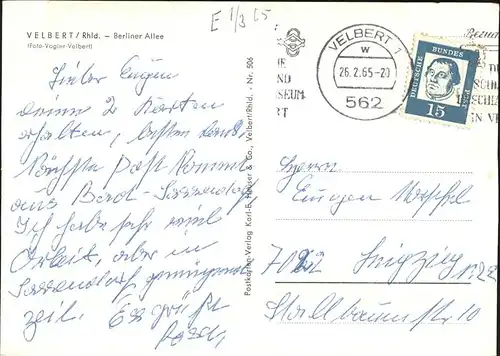 VELBERT/Rhld. – Berliner Allee
(Foto-Vogler-Velbert)
E 1/3 65
Lieber Eugen
deine 2 Karten
erhalten, besten Dank.
Nächste Post kommt
aus Bad-Sassendorf,
Ich habe sehr viel
Arbeit, aber in
Sassendorf genügend
zeit. Es grüßt
Postkarten-Verlag Karl-E. & Co., Velbert/Rhld. - Nr. 506
VELBERT 1
w
26.2.65-20
562
DEUTSCHE BUNDESPOST
15
Herrn
Eugen
Leipzig
10